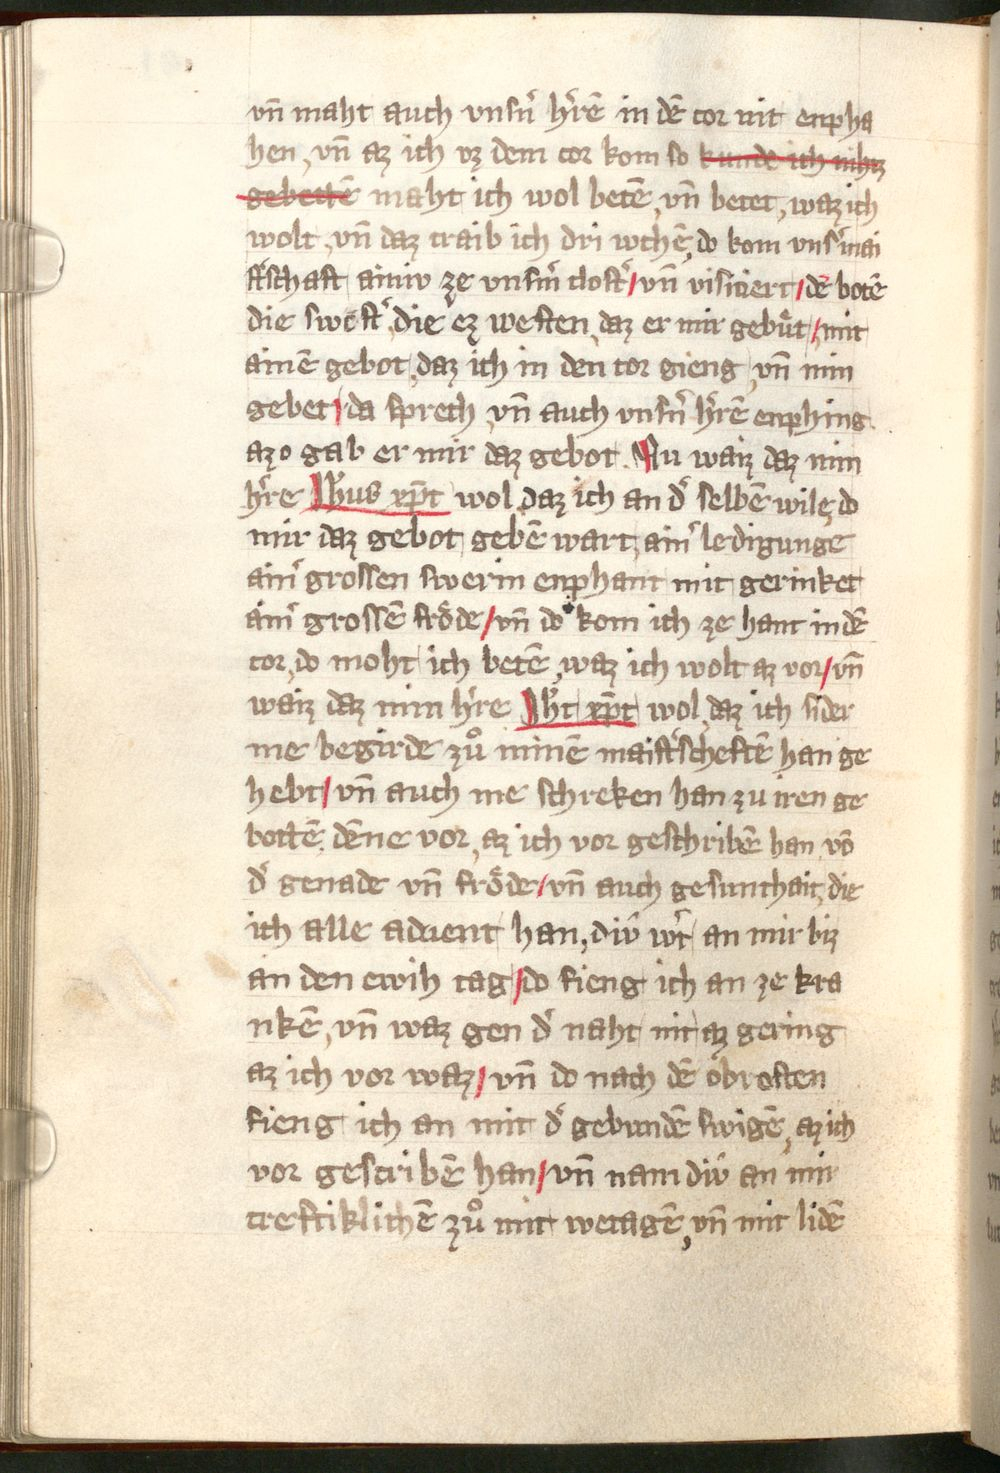 vn̄ maht auch vnsn̾ h̾rē in dē cor nit enpha
hen, vn̄ az ich vz dem cor kom so kunde ich nihtz
gebettē maht ich wol betē, vn̄ betet, waz ich
wolt, vn̄ daz traib ich dri wchē, do kom vns̾ mai
st̾schaft ainiv ze vnsm̾ clost̾/ vn̄ visitiert/ dē botē
die swest̾, die ez westen, daz er mir gebu̍t/, mit
ainē gebot, daz ich in den cor gieng, vn̄ min
gebet/ da sprech, vn̄ auch vnsn̾ h̾rē enphing.
azo gab er mir daz gebot. Nu waiz daz min
h̾re Jh̄us xp̄t wol, daz ich an d̾ selbē wile, do
mir daz gebot gebē wart, ain̾ ledigunge
ain̾ grossen swerin enphant mit gerinket
ain̾ grossē frȏde/ vn̄ do kom ich ze hant in dē
cor, do moht ich betē, waz ich wolt az vor/ vn̄
waiz daz min h̾re Jh̄t xp̄t wol, daz ich sider
me begirde zů minē maist̾scheftē han ge
hebt/ vn̄ auch me schreken han zu iren ge
bottē, dēne vor, az ich vor geschribē han vō
d̾ genade vn̄ frȏde/ vn̄ auch gesunthait, die
ich alle advent han, div̍ w̾t an mir biz
an den ewih tag/ do fieng ich an ze kra
nkē, vn̄ waz gen d̾ naht nit az gering
az ich vor waz/ vn̄ do nach dē obrosten
fieng ich an mit d̾ gebundē swigē, az ich
vor gescribē han/ vn̄ nam div̍ an mir
creftiklichē zů mit wetagē, vn̄ mit lidē